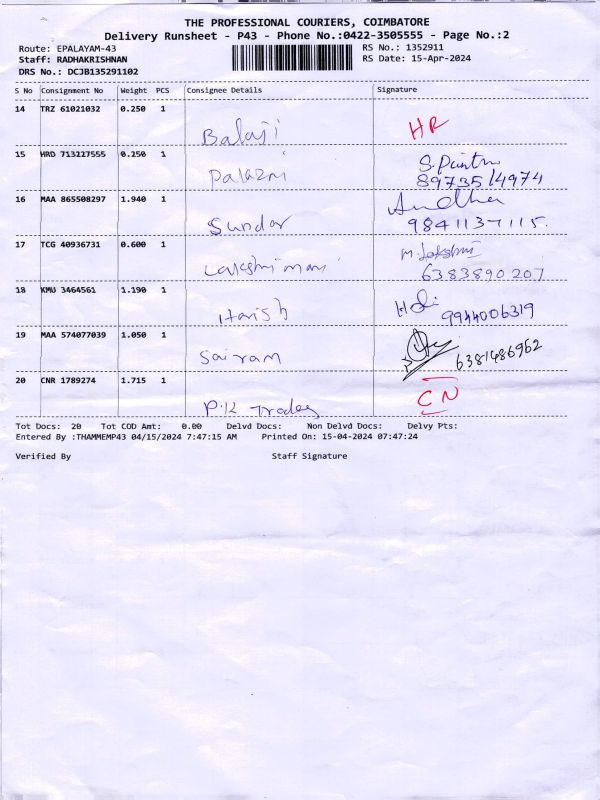 THE PROFESSIONAL COURIERS, COIMBATORE
Delivery Runsheet - P43 - Phone No.:0422-3505555 - Page No.:2
Route: EPALAYAM-43 RS No.: 1352911
Staff: RADHAKRISHNAN RS Date: 15-Apr-2024
DRS No.: DCJB135291102
S No Consignment No Weight PCS Consignee Details Signature
14 TRZ 61021032 0.250 1
Balaji HR
15 HRD 713227555 0.250 1
Palazni
8973514974
16 MAA 865508297 1.940 1
Sundar 9841137115.
17 TCG 40936731 0.600 1 M. Lakshmi
Lakshmi mani 6383890207
18 KMU 3464561 1.190 1
Harish 9944006319
19 MAA 574077039 1.050 1
Sairam 6381486962
20 CNR 1789274 1.715 1 CN
P.K Trades
Tot Docs: 20 Tot COD Amt: 0.00 Delvd Docs: Non Delvd Docs: Delvy Pts:
Entered By :THAMMEMP43 04/15/2024 7:47:15 AM Printed On: 15-04-2024 07:47:24
Verified By Staff Signature